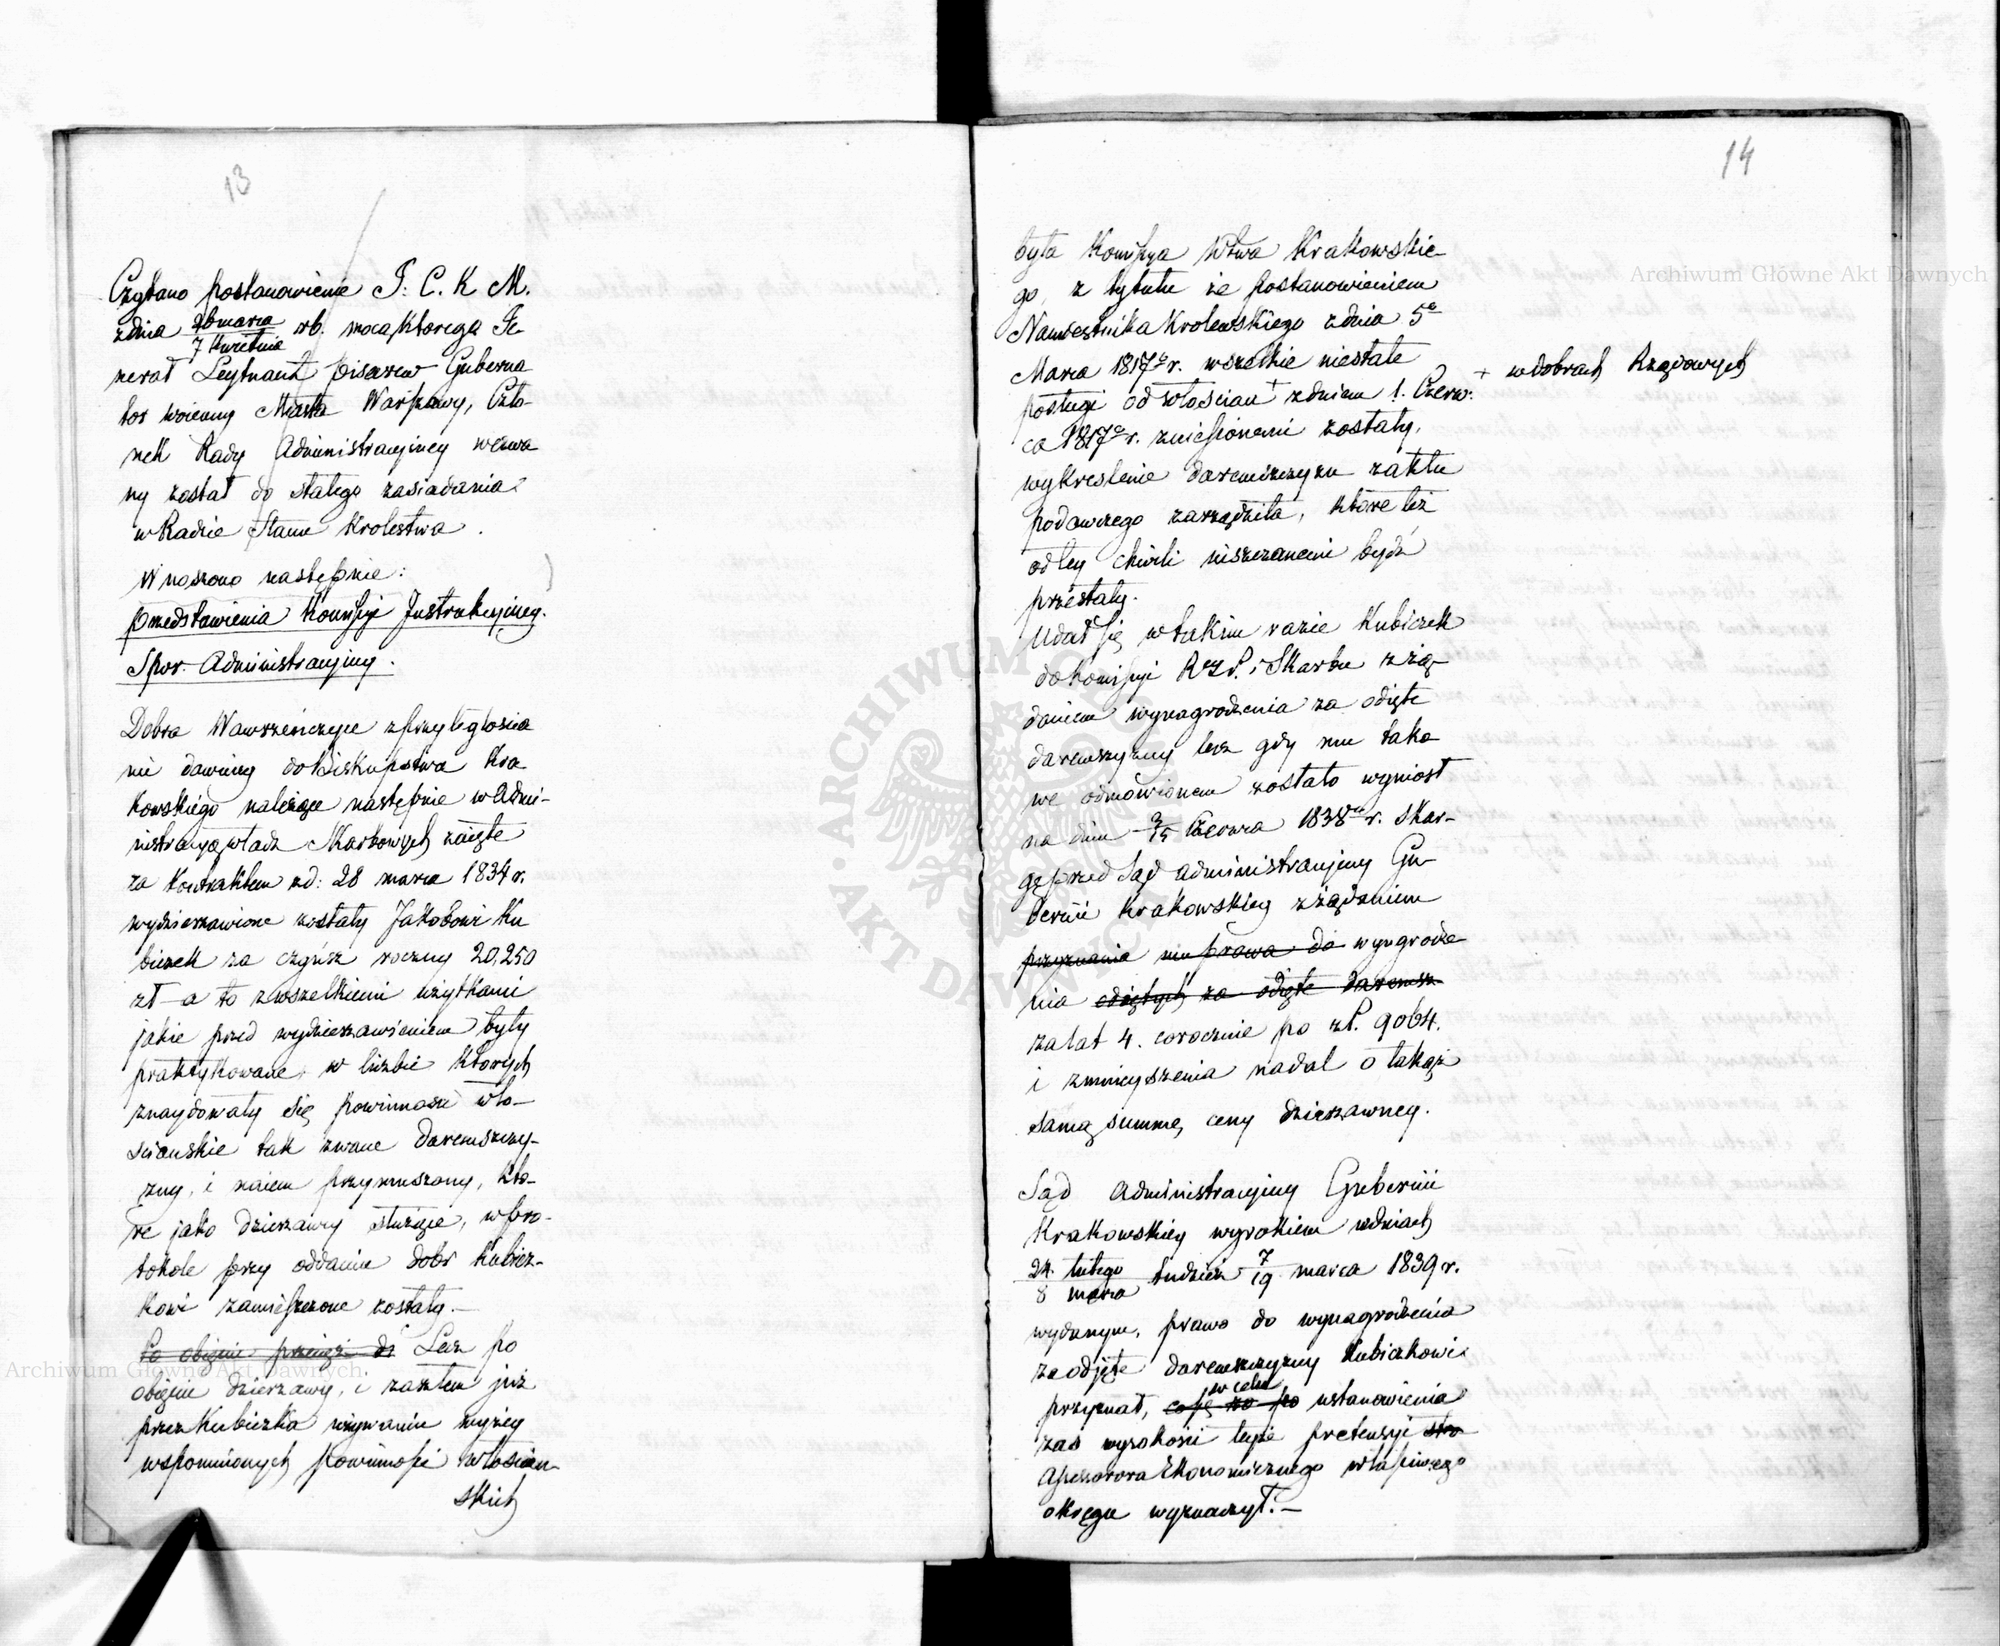 13
Czytano postanowienie J: C. K M.
z dnia 26 marca / 7 kwietnia rb. mocą ktorego Je-
nerał Leytnant Pisarew Guberna
tor woienny Miasta Warszawy, Czło-
nek Rady Administracyiney wezwa
ny został do stałego zasiadania
w Radzie Stanu Krolestwa.
Wnoszono następnie:
Przedstawienia Kommissyi Instrukcyiney.
Spor Administracyiny.
Dobra Wawrzeńczyce z przyległościa
mi dawniey do Biskupstwa Kra
kowskiego należące następnie w Admi-
nistracyą władz Skarbowych zaięte
za kontraktem z d: 28 marca 1834 r.
wydzierzawione zostały Jakobowi Ku
biczek za czynsz roczny 20,250
zł - a to z wszelkiemi użytkami
jakie przed wydzierzawieniem były
praktykowane, w liczbie ktorych
znaydowały się powinności wło-
sciańskie tak zwane daremszczy-
zny, i naiem przymuszony, kto-
re jako dzierzawy służące, w pro-
tokole przy oddaniu dobr Kubicz-
kowi zamieszczone zostały.—
Po obięciu Lecz po
obięciu dzierzawy, i zaszłem już
przez Kubiczka używaniu wyżey
wspomnionych powinności włosciań-
skich
14
była Kommissya Wtwa Krakowskie-
go, z tytułu że postanowieniem
Namiestnika Krolewskiego z dnia 5o
Marca 1817o r. wszelkie niestałe
posługi od włoscian + z dniem 1. Czerw-
+ w dobrach Rządowych
ca 1817o r. zniesionemi zostały,
wykreslenie daremszczyzn z aktu
podawczego zarządziła, które też
od tey chwili uiszczanemi bydź
przestały.
Udał się w takim razie Kubiczek
do Kommissyi R. P. i Skarbu z żą-
daniem wynagrodzenia za odięte
daremszczyzny lecz gdy mu tako
we odmówionem zostało wyniosł
na dniu 3/15 Czerwca 1838go r. skar-
gę przed Sąd administracyiny Gu-
bernii Krakowskiey z żądaniem
przyznania mu prawa do wynagrodze
nia odiętych za odięte daremszcz
za lat 4. corocznie po zł. 9064.
i zmnieyszenia nadal o takąż
samą summę, ceny dzierzawney.
Sąd Administracyiny Gubernii
Krakowskiey wyrokiem w dniach
24 lutego / 8 marca tudzież 7/19 marca 1839 r.
wydanym, prawo do wynagrodzenia
za odjęte daremszczyzny Kubiczkowi
przyznał, w celu ustanowienia
zas wysokości teyże pretensyi
Assessora Ekonomicznego właściwego
okręgu wyznaczył.—